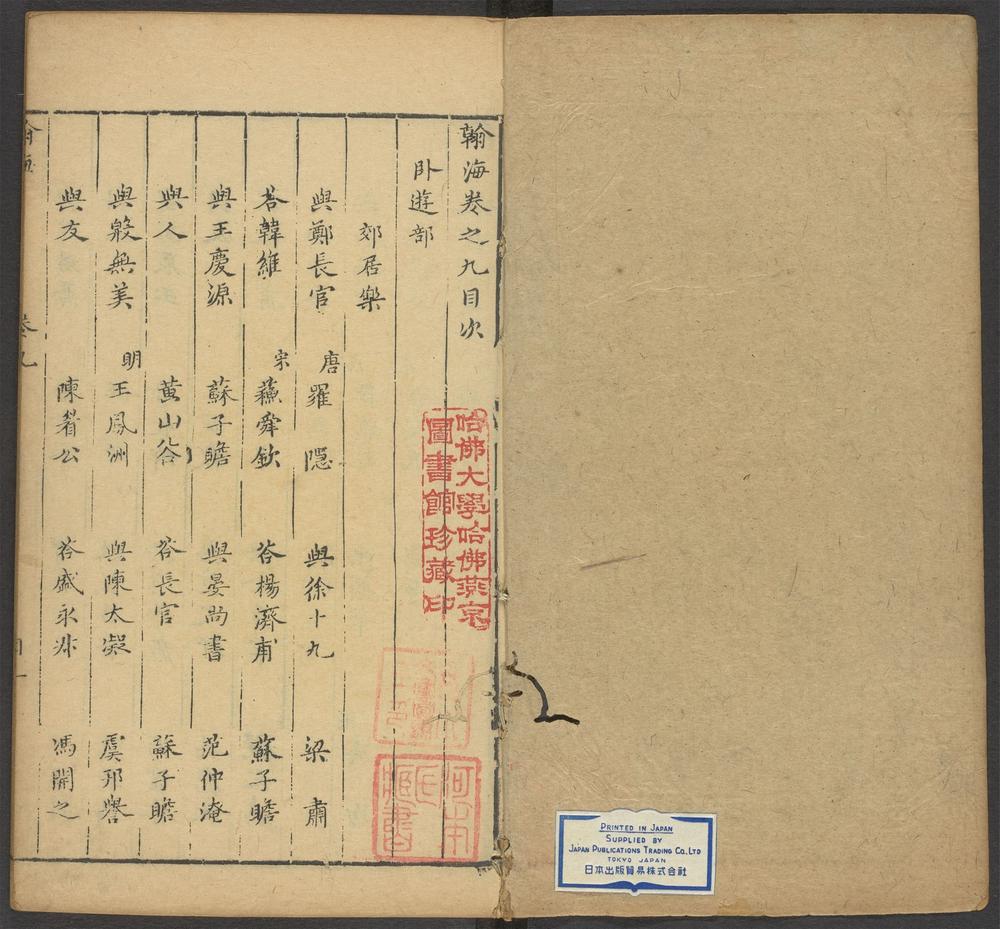 翰海卷之九目次
卧遊部
郊居樂
與鄭長官 唐羅隱 與徐十九 梁肅
荅韓維 宋蘓舜欽 荅楊濟甫 蘇子瞻
與王慶源 蘇子瞻 與晏尚書 范仲淹
與人 黄山谷 荅長官 蘇子瞻
與殷無美 明王鳳洲 與陳太凝 虞邦譽
與友 陳眉公 荅盛永州 馮開之
卷九
目一
哈佛大學哈佛燕京
圖書館珍藏印
PRINTED IN JAPAN
SUPPLIED BY
JAPAN PUBLICATIONS TRADING CO., LTD
TOKYO JAPAN
日本出版貿易株式会社